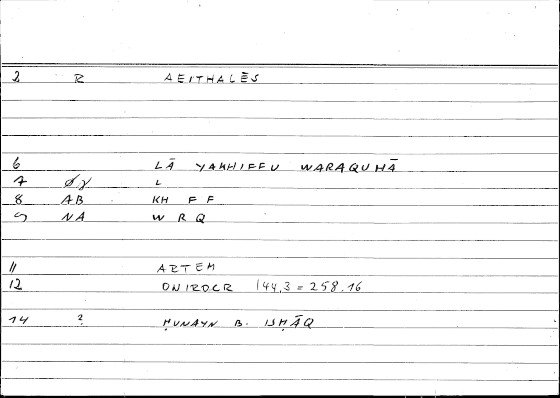 2 R AEITHALĒS
6 LĀ YAKHIFFU WARAQUHĀ
7 L
8 AB KH F F
9 NA W R Q
11 ARTEM
12 ONIROCR 144,3 = 258.16
14 ? ḤUNAYN B. ISḤĀQ